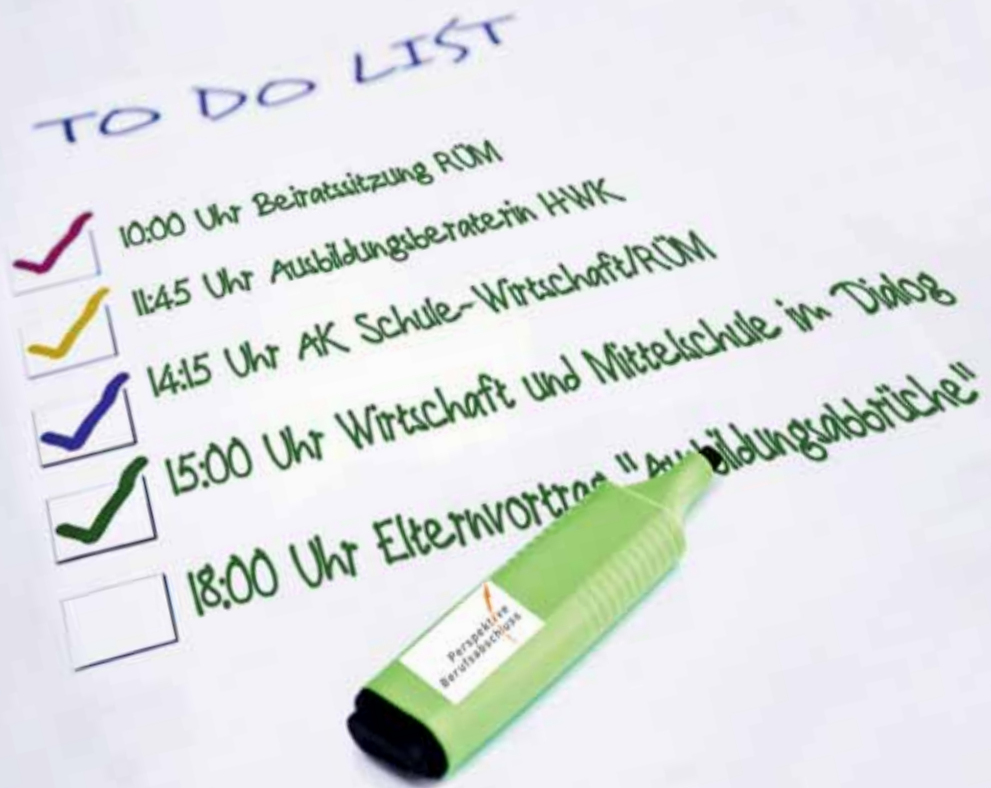 TO DO LIST
10:00 Uhr Beiratssitzung RÜM
11:45 Uhr Ausbildungsberaterin HWK
14:15 Uhr AK Schule-Wirtschaft/RÜM
15:00 Uhr Wirtschaft und Mittelschule im Dialog
18:00 Uhr Elternvortrag "Ausbildungsabbrüche"
Perspektive
Berufsabschluss